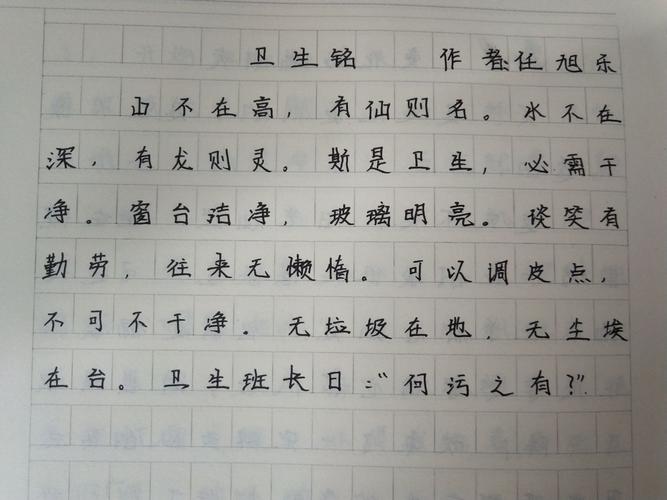 卫生铭 作者任旭乐
山不在高，有仙则名。水不在
深，有龙则灵。斯是卫生，必需干
净。窗台洁净，玻璃明亮。谈笑有
勤劳，往来无懒惰。可以调皮点，
不可不干净。无垃圾在地，无尘埃
在台。卫生班长曰：“何污之有？”